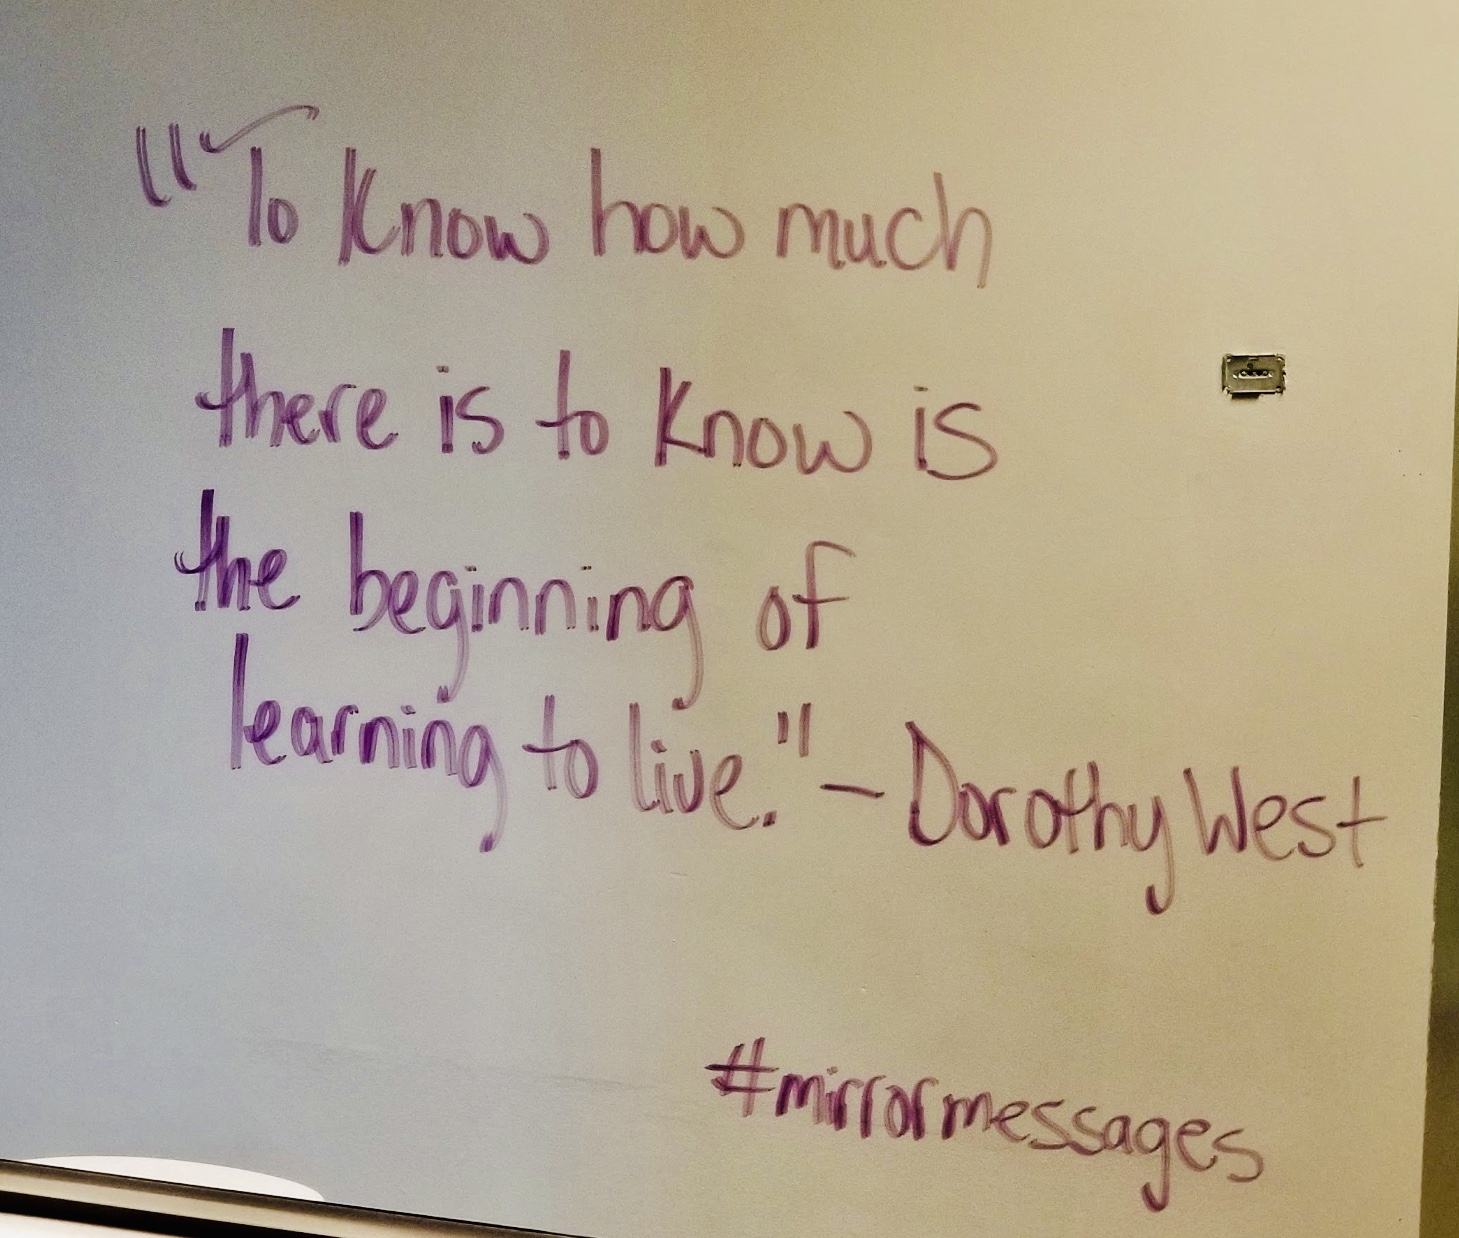 "To Know how much
there is to Know is
the beginning of
learning to live." - Dorothy West
#mirrormessages